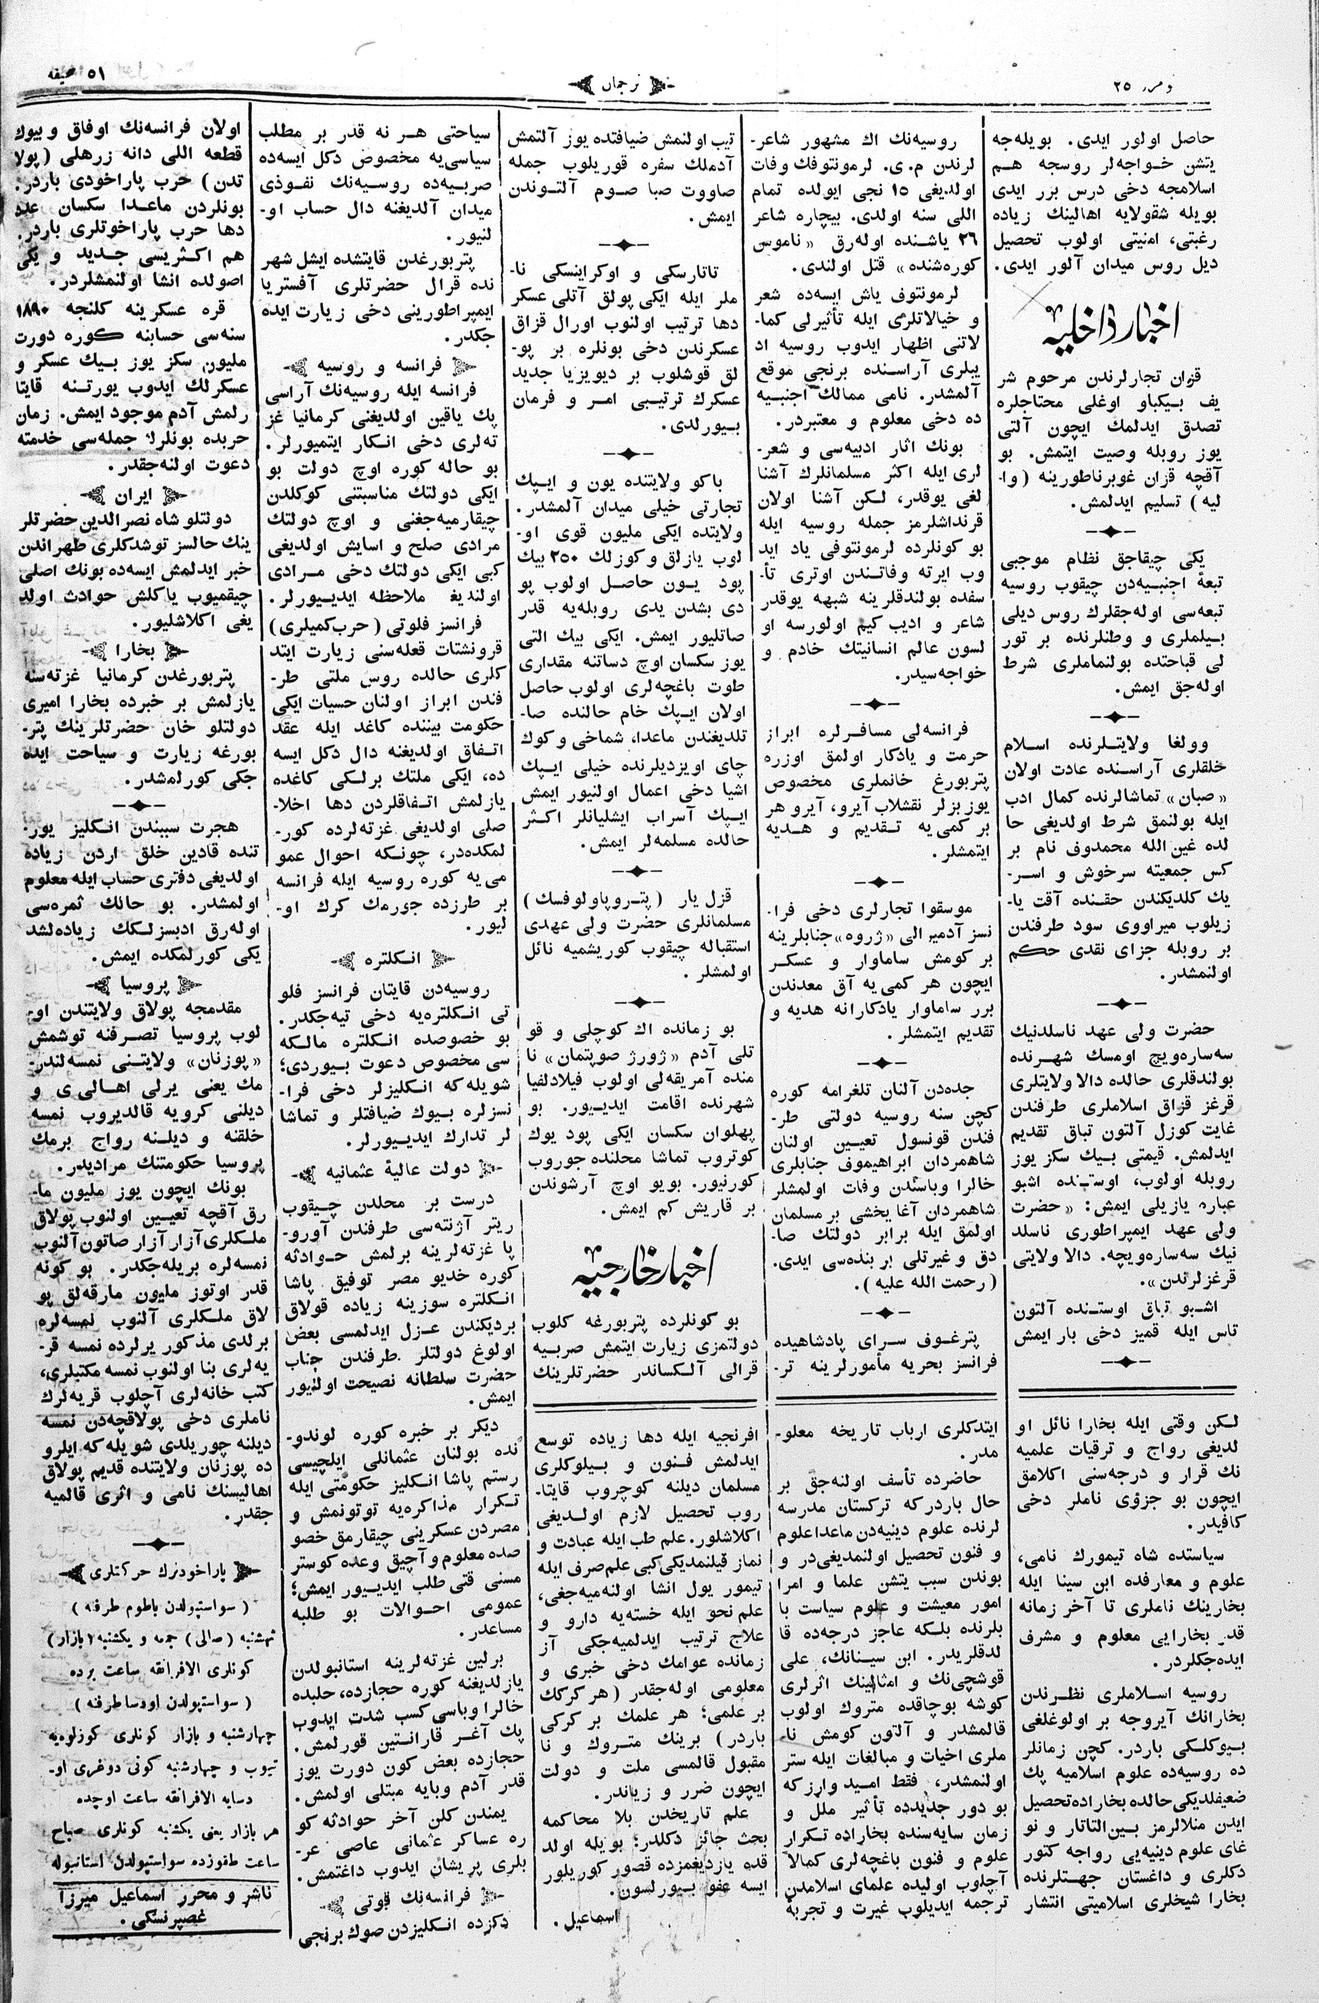 نومرو ٢٥
ترجمان
٥١ صحيفه
حاصل اولور ايدی. بويله‌جه
يتشن خواجه‌لر روسجه هم
اسلامجه دخی درس برر ايدی
بويله شقولايه اهالينك زياده
رغبتی، امنيتی اولوب تحصيل
ديل روس ميدان آلور ايدی.
اخبار داخليه
قزان تجارلرندن مرحوم شر
يف بيكباو اوغلی محتاجلره
تصدق ايدلمك ايچون آلتی
يوز روبله وصيت ايتمش. بو
آقچه قزان غوبرناطورينه (وا-
ليه) تسليم ايدلمش.
يكی چيقاجق نظام موجبی
تبعۀ اجنبيه‌دن چيقوب روسيه
تبعه‌سی اوله‌جقلرك روس ديلی
بيلملری و وطنلرنده بر تور
لی قباحتده بولنماملری شرط
اوله‌جق ايمش.
وولغا ولايتلرنده اسلام
خلقلری آراسنده عادت اولان
«صبان» تماشالرنده كمال ادب
ايله بولنمق شرط اولديغی حا
لده غين الله محمدوف نام بر
كس جمعيته سرخوش و اسر-
يك كلديكندن حقنده آقت يا-
زيلوب ميراووی سود طرفندن
بر روبله جزای نقدی حكم
اولنمشدر.
حضرت ولی عهد ناسلدنيك
سه‌ساره‌ويچ اومسك شهرنده
بولندقلری حالده دالا ولايتلری
قرغز قزاق اسلاملری طرفندن
غايت كوزل آلتون تباق تقديم
ايدلمش. قيمتی بيك سكز يوز
روبله اولوب، اوستنده اشبو
عباره يازيلی ايمش: «حضرت
ولی عهد ايمپراطوری ناسلد
نيك سه‌ساره‌ويچه. دالا ولايتی
قرغزلرندن».
اشبو تباق اوستنده آلتون
تاس ايله قميز دخی بار ايمش
روسيه‌نك اك مشهور شاعر-
لرندن م.ی. لرمونتوفك وفات
اولديغی ١٥ نجی ايولده تمام
اللی سنه اولدی. بيچاره شاعر
٢٦ ياشنده اوله‌رق «ناموس
كوره‌شنده» قتل اولندی.
لرمونتوف ياش ايسه‌ده شعر
و خيالاتلری ايله تأثيرلی كما-
لاتنی اظهار ايدوب روسيه اد
يبلری آراسنده برنجی موقع
آلمشدر. نامی ممالك اجنبيه
ده دخی معلوم و معتبردر.
بونك اثار ادبيه‌سی و شعر-
لری ايله اكثر مسلمانلرك آشنا
لغی يوقدر، لكن آشنا اولان
قرنداشلرمز جمله روسيه ايله
بو كونلرده لرمونتوفی ياد ايد
وب ايرته وفاتندن اوتری تأ-
سفده بولندقلرينه شبهه يوقدر
شاعر و اديب كيم اولورسه او
لسون عالم انسانيتك خادم و
خواجه‌سيدر.
فرانسه‌لی مسافرلره ابراز
حرمت و يادكار اولمق اوزره
پتربورغ خانملری مخصوص
يوزبزلر نقشلاب آيرو، آيرو هر
بر كمی يه تقديم و هديه
ايتمشلر.
موسقوا تجارلری دخی فرا-
نسز آدميرالی «ژروه» جنابلرينه
بر كومش ساماوار و عسكر
ايچون هر كمی‌يه آق معدندن
برر ساماوار يادكارانه هديه و
تقديم ايتمشلر.
جده‌دن آلنان تلغرامه كوره
كچن سنه روسيه دولتی طر-
فندن قونسول تعيين اولنان
شاهمردان ابراهيموف جنابلری
خالرا وباسندن وفات اولمشلر
شاهمردان آغا يخشی بر مسلمان
اولمق ايله برابر دولتك صا-
دق و غيرتلی بر بنده‌سی ايدی.
(رحمت الله عليه).
پترغوف سرای پادشاهيده
فرانسز بحريه مأمورلرينه تر-
تيب اولنمش ضيافتده يوز آلتمش
آدملك سفره قوريلوب جمله
صاووت صبا صوم آلتوندن
ايمش.
تاتارسكی و اوكراينسكی نا-
ملر ايله ايكی پولق آتلی عسكر
دها ترتيب اولنوب اورال قزاق
عسكرندن دخی بونلره بر پو-
لق قوشلوب بر ديويزيا جديد
عسكرك ترتيبی امر و فرمان
بيورلدی.
باكو ولايتنده يون و ايپك
تجارتی خيلی ميدان آلمشدر.
ولايتده ايكی مليون قوی او-
لوب يازلق و كوزلك ٢٥٠ بيك
پود يون حاصل اولوب پو
دی بشدن يدی روبله‌يه قدر
صاتليور ايمش. ايكی بيك التی
يوز سكسان اوچ دساتنه مقداری
طوت باغچه‌لری اولوب حاصل
اولان ايپك خام حالنده صا-
تلديغندن ماعدا، شماخی و كوك
چای اويزديلرنده خيلی ايپك
اشيا دخی اعمال اولنيور ايمش
ايپك آسراب ايشليانلر اكثر
حالده مسلمه‌لر ايمش.
قزل يار (پتروپاولوفسك)
مسلمانلری حضرت ولی عهدی
استقباله چيقوب كوريشميه نائل
اولمشلر.
بو زمانده اك كوچلی و قو
تلی آدم «ژورژ صوپتمان» نا
منده آمريقه‌لی اولوب فيلادلفيا
شهرنده اقامت ايديور. بو
پهلوان سكسان ايكی پود يوك
كوتروب تماشا محلنده جوروب
كورنيور. بويو اوچ آرشوندن
بر قاريش كم ايمش.
اخبار خارجيه
بو كونلرده پتربورغه كلوب
دولتمزی زيارت ايتمش صربيه
قرالی آلكساندر حضرتلرينك
سياحتی هر نه قدر بر مطلب
سياسی‌يه مخصوص دكل ايسه‌ده
صربيه‌ده روسيه‌نك نفوذی
ميدان آلديغنه دال حساب او-
لنيور.
پتربورغدن قايتشده ايشل شهر
نده قرال حضرتلری آفستريا
ايمپراطورينی دخی زيارت ايده
جكدر.
فرانسه و روسيه
فرانسه ايله روسيه‌نك آراسی
پك ياقين اولديغنی كرمانيا غز
ته‌لری دخی انكار ايتميورلر.
بو حاله كوره اوچ دولت بو
ايكی دولتك مناسبتنی كوكلدن
چيقارميه‌جغنی و اوچ دولتك
مرادی صلح و اسايش اولديغی
كبی ايكی دولتك دخی مرادی
اولنديغ ملاحظه ايديورلر.
فرانسز فلوتی (حرب كميلری)
قرونشتات قعله‌سنی زيارت ايتد
كلری حالده روس ملتی طر-
فندن ابراز اولنان حسيات ايكی
حكومت بيننده كاغد ايله عقد
اتفاق اولديغنه دال دكل ايسه
ده، ايكی ملتك برلكی كاغده
يازلمش اتفاقلردن دها اخلا-
صلی اولديغی غزته‌لرده كور-
لمكده‌در، چونكه احوال عمو
می‌يه كوره روسيه ايله فرانسه
بر طرزده جورمك كرك او-
ليور.
انكلتره
روسيه‌دن قايتان فرانسز فلو
تی انكلتره‌يه دخی تيه‌جكدر.
بو خصوصده انكلتره مالكه
سی مخصوص دعوت بيوردی؛
شويله‌كه انكليزلر دخی فرا-
نسزلره بيوك ضيافتلر و تماشا
لر تدارك ايديورلر.
دولت عاليۀ عثمانيه
درست بر محلدن چيقوب
ريتر آژنته‌سی طرفندن آورو-
پا غزته‌لرينه برلمش حوادثه
كوره خديو مصر توفيق پاشا
انكلتره سوزينه زياده قولاق
برديكندن عزل ايدلمسی بعض
اولوغ دولتلر طرفندن جناب
حضرت سلطانه نصيحت اولنيور
ايمش.
ديكر بر خبره كوره لوندو-
نده بولنان عثمانلی ايلچيسی
رستم پاشا انكليز حكومتی ايله
تكرار مذاكره‌يه توتونمش و
مصردن عسكرينی چيقارمق خصو
صده معلوم و آچيق وعده كوستر
مسنی قتی طلب ايديور ايمش؛
عمومی احوالات بو طلبه
مساعدر.
برلين غزته‌لرينه استانبولدن
يازلديغنه كوره حجازده، حلبده
خالرا وباسی كسب شدت ايدوب
پك آغر قارانتين قورلمش.
حجازده بعض كون دورت يوز
قدر آدم وبايه مبتلی اولمش.
يمندن كلن آخر حوادثه كو
ره عساكر عثمانی عاصی عر-
بلری پريشان ايدوب داغتمش.
فرانسه‌نك قوتی
دكزده انكليزدن صوك برنجی
اولان فرانسه‌نك اوفاق و بيوك
قطعه اللی دانه زرهلی (پولا
تدن) حرب پاراخودی باردر.
بونلردن ماعدا سكسان عدد
دها حرب پاراخوتلری باردر.
هم اكثريسی جديد و يكی
اصولده انشا اولنمشلردر.
قره عسكرينه كلنجه ١٨٩٠
سنه‌سی حسابنه كوره دورت
مليون سكز يوز بيك عسكر و
عسكرلك ايدوب يورتنه قايتا
رلمش آدم موجود ايمش. زمان
حربده بونلرك جمله‌سی خدمته
دعوت اولنه‌جقدر.
ايران
دولتلو شاه نصرالدين حضرتلر
ينك حالسز توشدكلری طهراندن
خبر ايدلمش ايسه‌ده بونك اصلی
چيقميوب ياكلش حوادث اولد
يغی اكلاشليور.
بخارا
پتربورغدن كرمانيا غزته‌سنه
يازلمش بر خبرده بخارا اميری
دولتلو خان حضرتلرينك پتر-
بورغه زيارت و سياحت ايده
جكی كورلمشدر.
هجرت سببندن انكليز يور-
تنده قادين خلق اردن زياده
اولديغی دفتری حساب ايله معلوم
اولمشدر. بو حالك ثمره‌سی
اوله‌رق ادبسزلكك زياده‌لشد
يكی كورلمكده ايمش.
پروسيا
مقدمجه پولاق ولايتندن او-
لوب پروسيا تصرفنه توشمش
«پوزنان» ولايتنی نمسه‌لندر-
مك يعنی يرلی اهالی ی و
ديلنی كرويه قالديروب نمسه
خلقنه و ديلنه رواج برمك
پروسيا حكومتنك مراديدر.
بونك ايچون يوز مليون ما-
رق آقچه تعيين اولنوب پولاق
ملكلری آزار آزار صاتون آلنوب
نمسه‌لره بريله‌جكدر. بو كونه
قدر اوتوز مليون مارقه‌لق پو
لاق ملكلری آلنوب نمسه‌لره
برلدی مذكور يرلرده نمسه قر-
يه‌لری بنا اولنوب نمسه مكتبلری،
كتب خانه‌لری آچلوب قريه‌لرك
ناملری دخی پولاقچه‌دن نمسه
ديلنه چوريلدی شويله‌كه ايلرو
ده پوزنان ولايتنده قديم پولاق
اهاليسنك نامی و اثری قالميه
جقدر.
پاراخودنرك حركتلری
(سواستپولدن باطوم طرفه)
ثهشنبه (صالی) جمعه و يكشنبه (بازار)
كونلری الافرانقه ساعت برده
(سواستپولدن اودسا طرفه)
چهارشنبه و بازار كونلری كوزلويه
تيوب و چهارشنبه كونی دوغری او-
دسايه الافرانقه ساعت اوچده
هر بازار يعنی يكشنبه كونلری صباح
ساعت طقوزده سواستپولدن استانبوله
ناشر و محرر اسماعيل ميرزا
غصپرنسكی.
لكن وقتی ايله بخارا نائل او
لديغی رواج و ترقيات علميه
نك قرار و درجه‌سنی اكلامق
ايچون بو جزؤی ناملر دخی
كافيدر.
سياستده شاه تيمورك نامی،
علوم و معارفده ابن سينا ايله
بخارينك ناملری تا آخر زمانه
قدر بخارايی معلوم و مشرف
ايده‌جكلردر.
روسيه اسلاملری نظرندن
بخارانك آيروجه بر اولوغلغی
بيوكلكی باردر. كچن زمانلر
ده روسيه‌ده علوم اسلاميه پك
ضعيفلديكی حالده بخاراده تحصيل
ايدن منلالرمز بين‌التاتار و نو
غای علوم دينيه‌یی رواجه كتور
دكلری و داغستان جهتلرنده
بخارا شيخلری اسلاميتی انتشار
ايتدكلری ارباب تاريخه معلو-
مدر.
حاضرده تأسف اولنه‌جق بر
حال باردركه تركستان مدرسه
لرنده علوم دينيه‌دن ماعدا علوم
و فنون تحصيل اولنمديغی‌در و
بوندن سبب يتشن علما و امرا
امور معيشت و علوم سياست با
بلرنده بلكه عاجز درجه‌ده قا
لدقلريدر. ابن سينانك، علی
قوشچی‌نك و امثالينك اثرلری
كوشه بوجاقده متروك اولوب
قالمشدر و آلتون كومش نا-
ملری اخبات و مبالغات ايله ستر
اولنمشدر، فقط اميد واررز كه
بو دور جديدده تأثير ملل و
زمان سايه‌سنده بخاراده تكرار
علوم و فنون باغچه‌لری كمالا
آچلوب اوليده علمای اسلامدن
ترجمه ايديلوب غيرت و تجربۀ
افرنجيه ايله دها زياده توسع
ايدلمش فنون و بيلوكلری
مسلمان ديلنه كوچروب قايتا-
روب تحصيل لازم اولديغی
اكلاشلور. علم طب ايله عبادت و
نماز قيلنمديكی كبی علم صرف ايله
تيمور يول انشا اولنه‌ميه‌جغی،
علم نحو ايله خسته‌يه دارو و
علاج ترتيب ايدلميه‌جكی آز
زمانده عوامك دخی خبری و
معلومی اوله‌جقدر (هر كركك
بر علمی؛ هر علمك بر كركی
باردر) برينك متروك و نا
مقبول قالمسی ملت و دولت
ايچون ضرر و زياندر.
علم تاريخدن بلا محاكمه
بحث جائز دكلدر؛ بويله اولد
قده يازديغمزده قصور كوريلور
ايسه عفو بيورلسون.
اسماعيل.